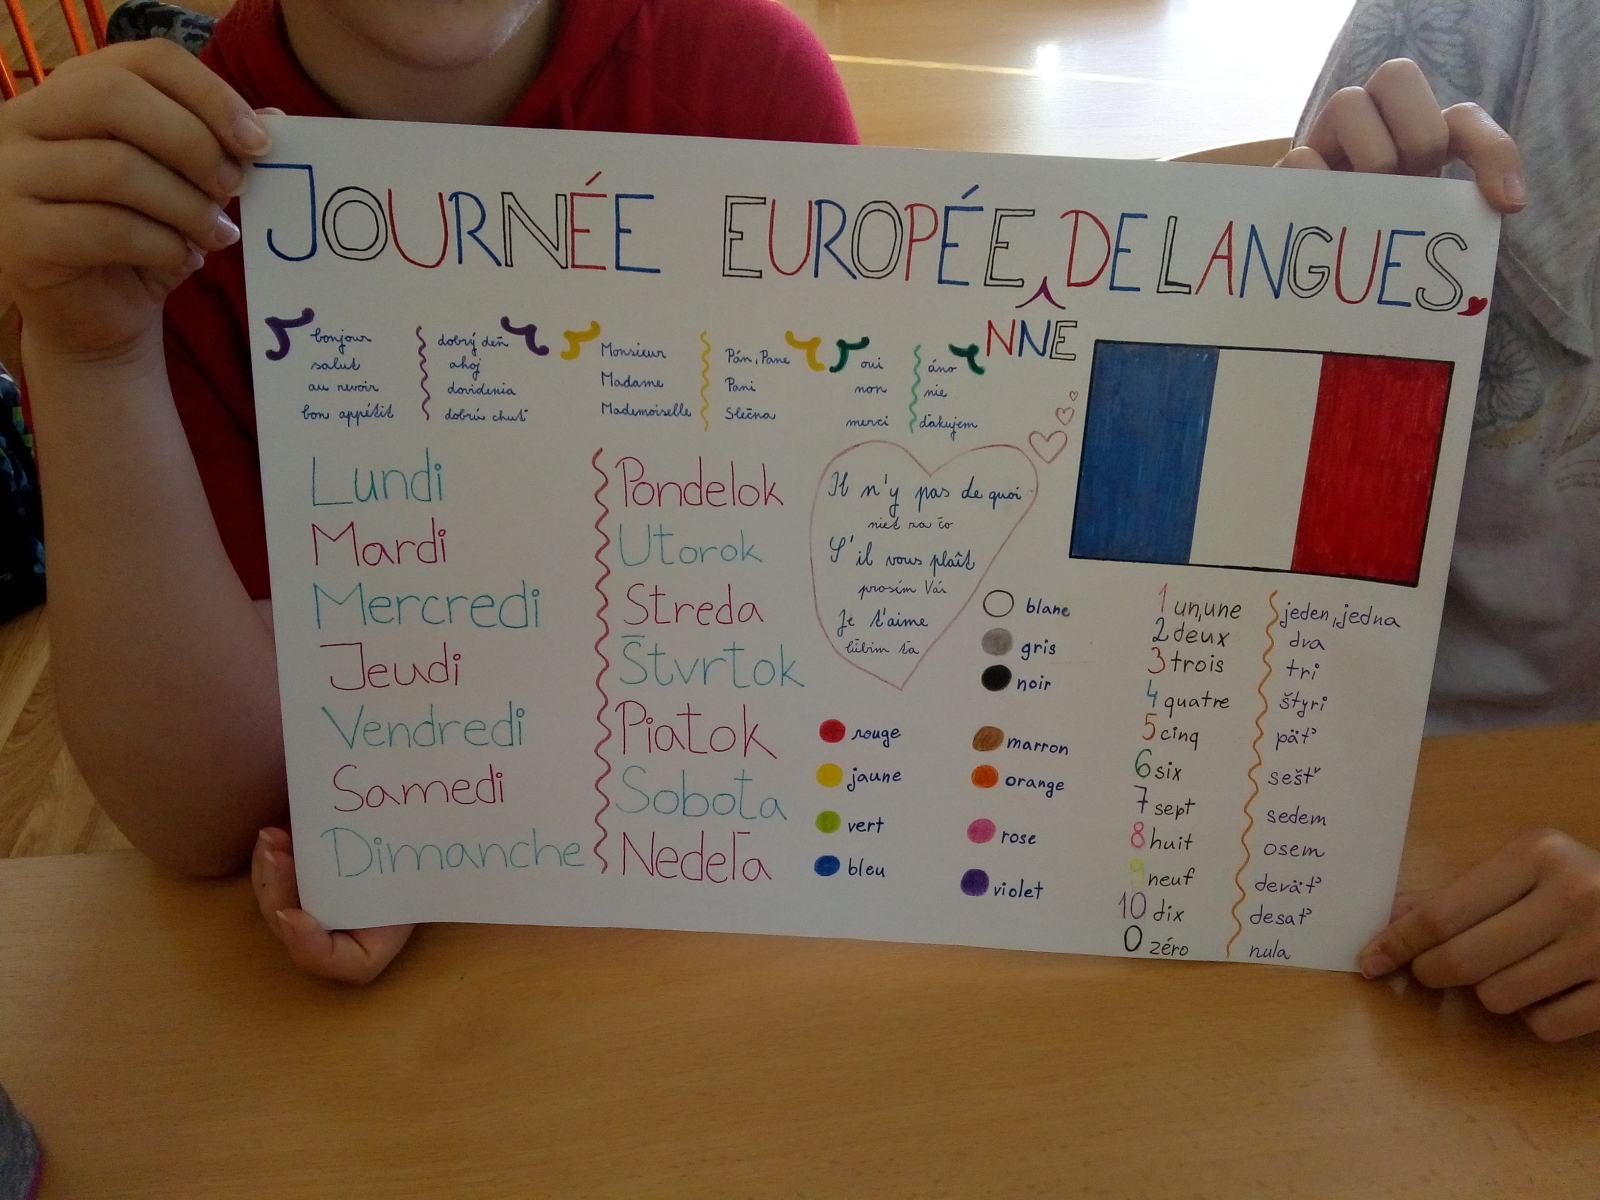 JOURNÉE EUROPÉE DE LANGUES
NNE
bonjour dobrý deň
salut ahoj
au revoir dovidenia
bon appétit dobrú chuť
Monsieur Pán, Pane
Madame Pani
Mademoiselle Slečna
oui áno
non nie
merci ďakujem
Lundi Pondelok
Mardi Utorok
Mercredi Streda
Jeudi Štvrtok
Vendredi Piatok
Samedi Sobota
Dimanche Nedeľa
Il n'y pas de quoi
niet za čo
S'il vous plaît
prosím Vás
Je t'aime
ľúbim ťa
blanc
gris
noir
rouge
jaune
vert
bleu
marron
orange
rose
violet
1 un,une jeden, jedna
2 deux dva
3 trois tri
4 quatre štyri
5 cinq päť
6 six šesť
7 sept sedem
8 huit osem
9 neuf deväť
10 dix desať
0 zéro nula